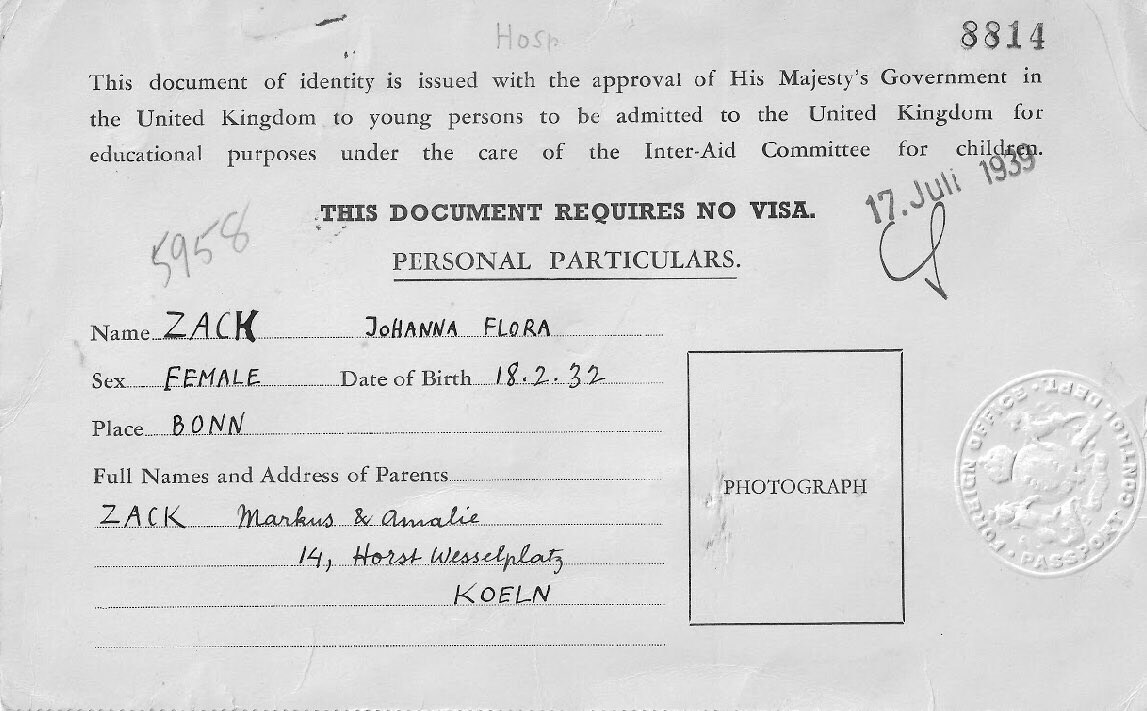 Hosp
8814
This document of identity is issued with the approval of His Majesty's Government in
the United Kingdom to young persons to be admitted to the United Kingdom for
educational purposes under the care of the Inter-Aid Committee for children.
17. Juli 1939
THIS DOCUMENT REQUIRES NO VISA.
5958
PERSONAL PARTICULARS.
Name ZACK JOHANNA FLORA
Sex FEMALE Date of Birth 18.2.32
Place BONN
Full Names and Address of Parents
ZACK Markus & Amalie
14, Horst Wesselplatz
KOELN
PHOTOGRAPH
PASSPORT CONTROL DEPT. FOREIGN OFFICE